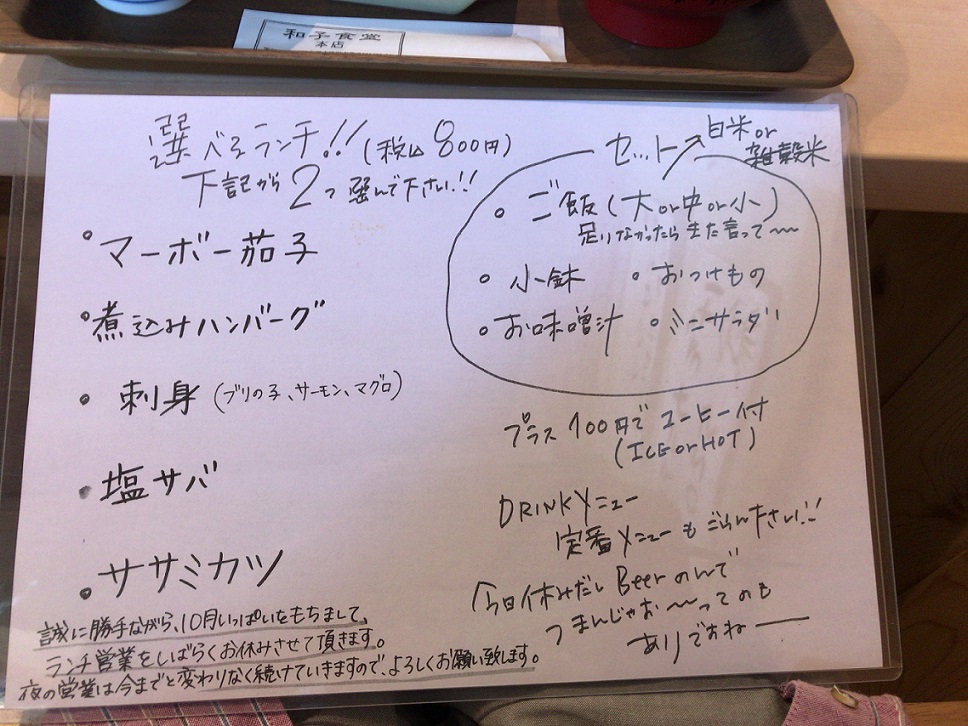 和子食堂
本店
選べるランチ!! (税込 800円)
下記から2つ選んで下さい!!
・マーボー茄子
・煮込みハンバーグ
・刺身 (ブリの子、サーモン、マグロ)
・塩サバ
・ササミカツ
誠に勝手ながら、10月いっぱいをもちまして、
ランチ営業をしばらくお休みさせて頂きます。
夜の営業は今までと変わりなく続けていきますので、よろしくお願い致します。
セット→白米or
雑穀米
・ご飯(大or中or小)
足りなかったらまた言って〜
・小鉢 ・おつけもの
・お味噌汁 ・ミニサラダ
プラス100円でコーヒー付
(ICE or HOT)
DRINKメニュー
定番メニューもごらん下さい!!
今日休みだし Beerのんで
つまんじゃお〜ってのも
ありですねー